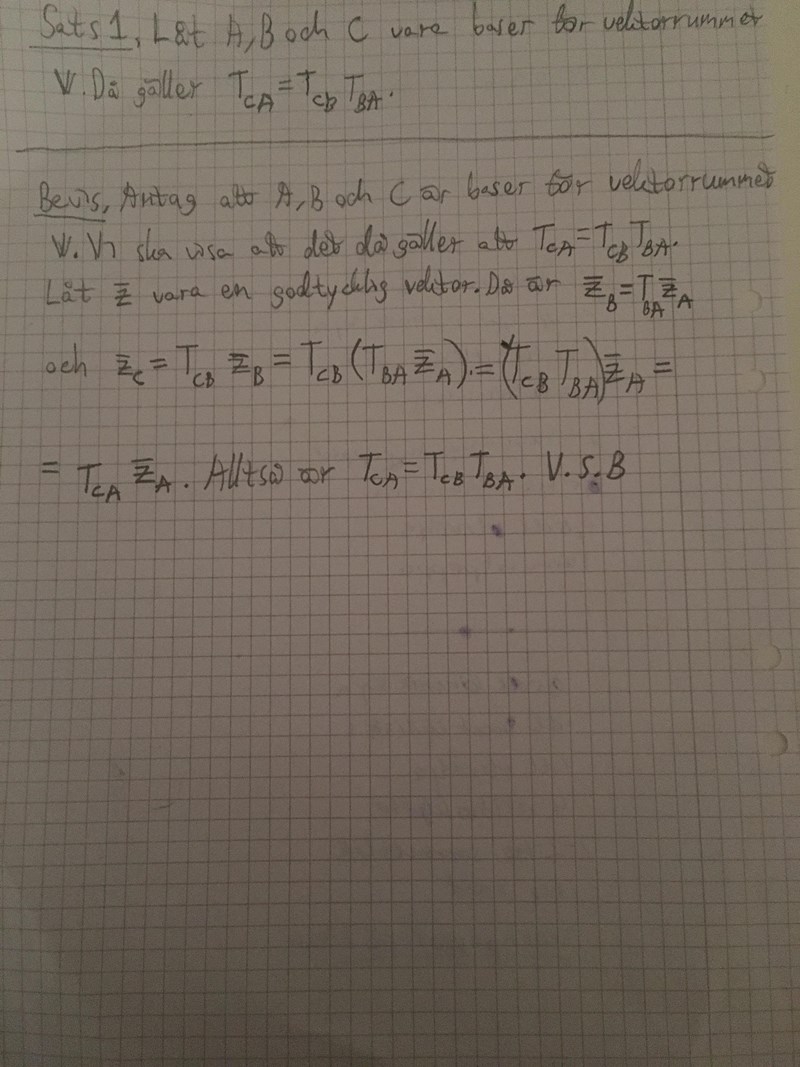 Sats 1, Låt A, B och C vara baser för vektorrummet
V. Då gäller T_CA = T_CB T_BA.
Bevis, Antag att A, B och C är baser för vektorrummet
V. Vi ska visa att det då gäller att T_CA = T_CB T_BA.
Låt z̄ vara en godtycklig vektor. Då är z̄_B = T_BA z̄_A
och z̄_C = T_CB z̄_B = T_CB (T_BA z̄_A). = (T_CB T_BA) z̄_A =
= T_CA z̄_A. Alltså är T_CA = T_CB T_BA. V.S.B